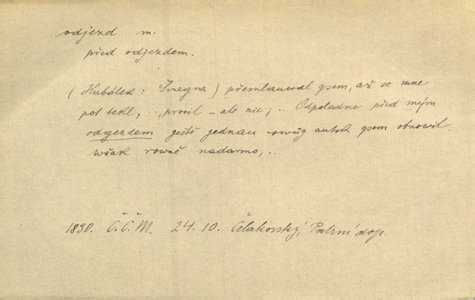 odjezd m.
před odjezdem.
(Hubálek: Svagra) přemlauwal gsem, až se mne
pot lekl, ., prosil - ale nic; .. Odpoledne před mým
odgezdem gestě gednau swůg autok gsem obnowil
wšak rowně nadarmo, ..
1830. Č.Č.M. 24. 10. Čelakovský, Patrní dop.